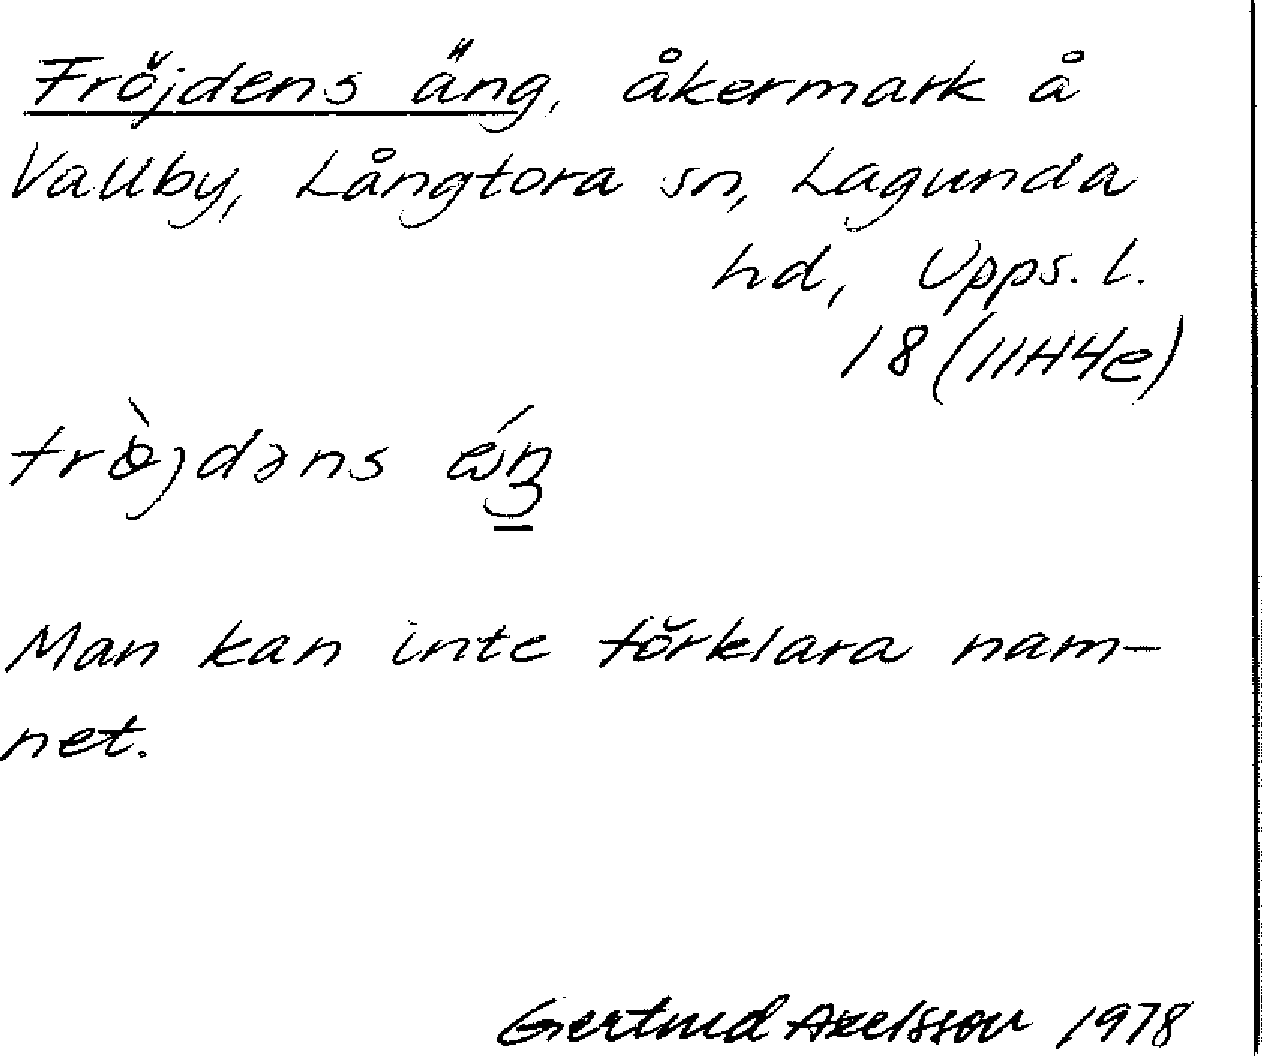 Fröjdens äng, åkermark å
Vallby, Långtora sn, Lagunda
hd, Upps. l.
18 (11H4e)
frö̀jdəns ǽŋ
Man kan inte förklara nam-
net.
Gertrud Axelsson 1978